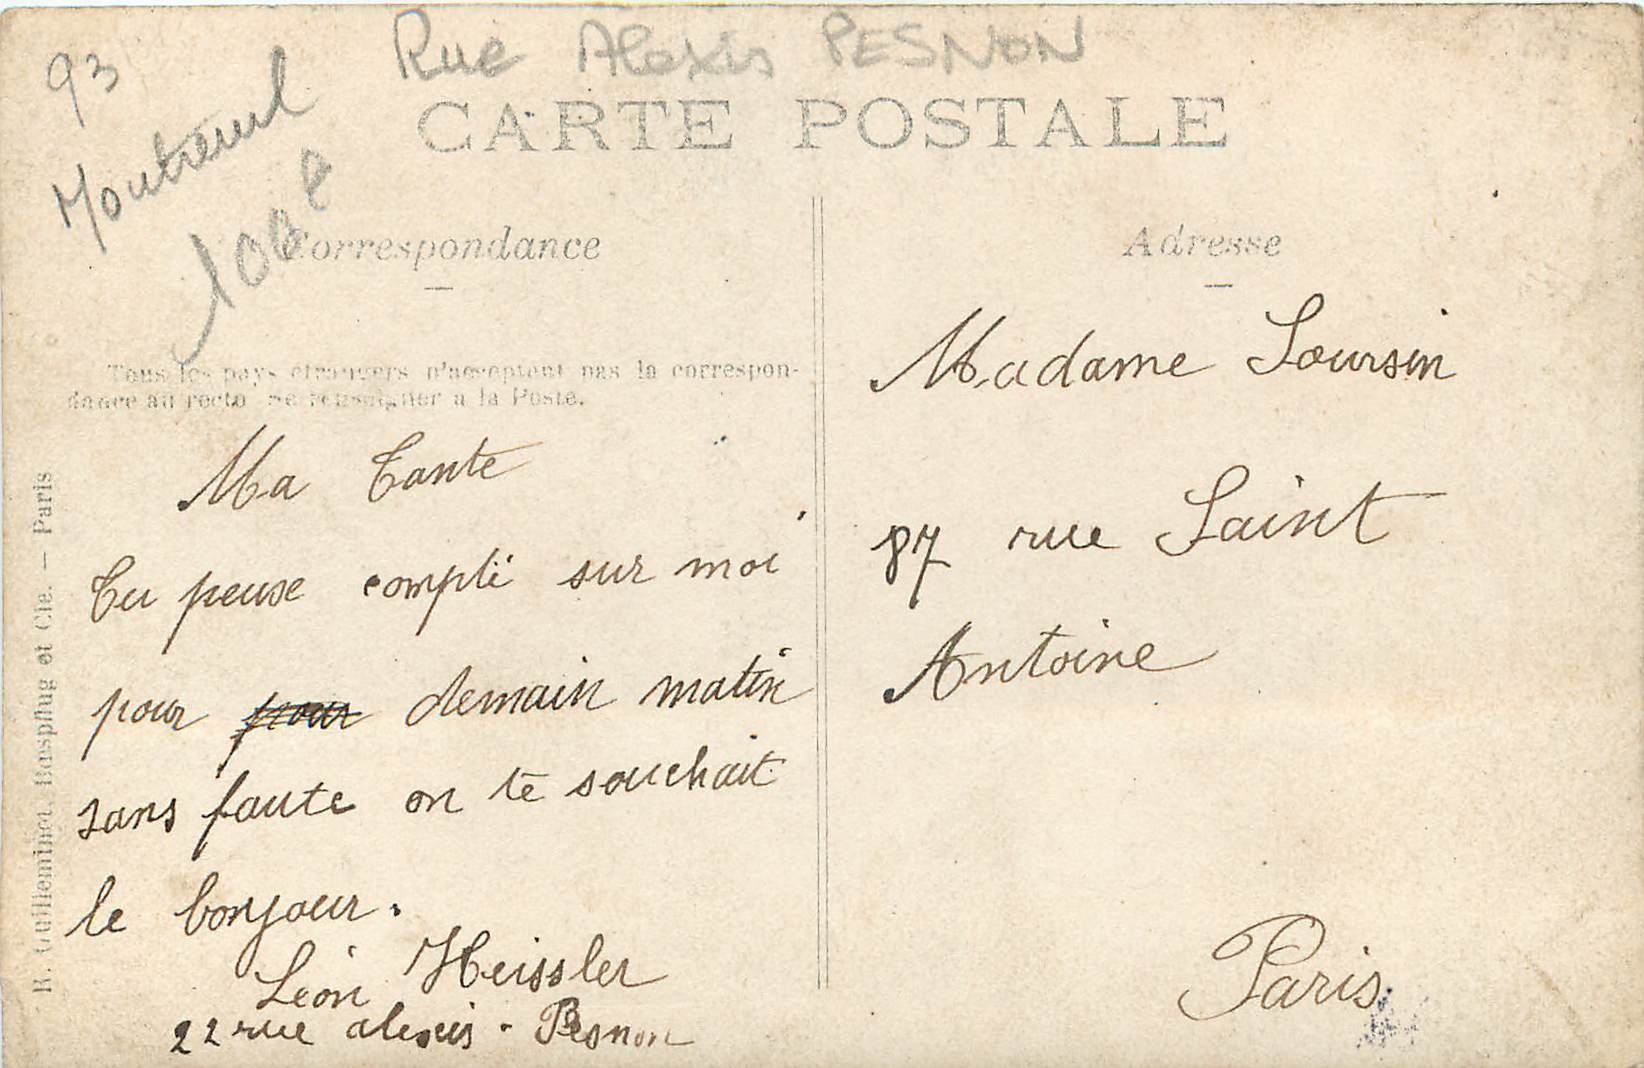 93 Rue Alexis PESNON
Montreuil
100 e
CARTE POSTALE
Correspondance
Adresse
Tous les pays étrangers n'acceptent pas la correspon-
dance au recto Se renseigner à la Poste.
Ma Tante
Tu peuse compté sur moi
pour pour demain matin
sans faute on te souchait
le bonjour.
Léon Heissler
22 rue alexis. Pesnon
Madame Soursin
87 rue Saint
Antoine
Paris
R. Guilleminot, Bœspflug et Cie. — Paris